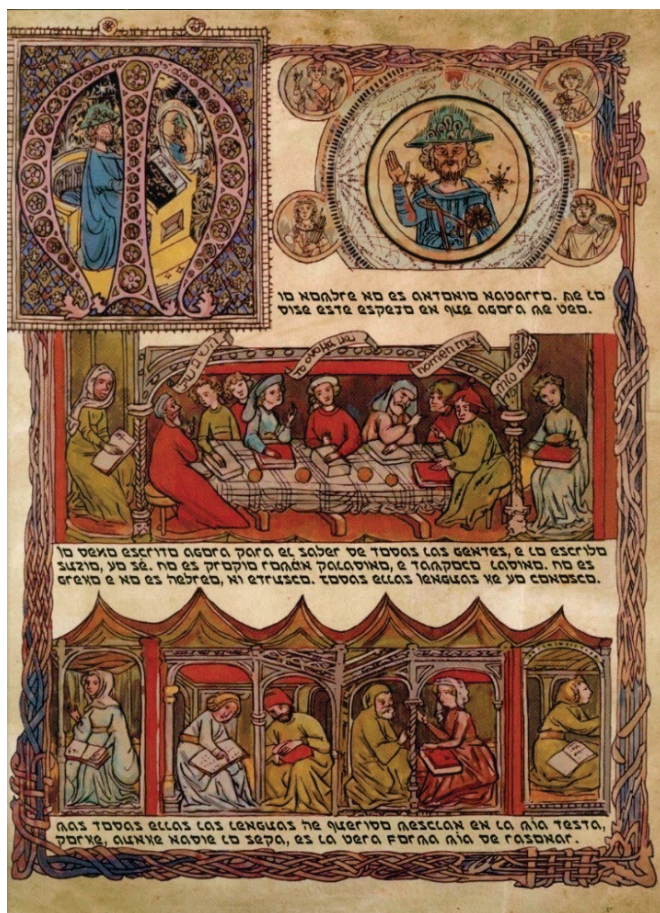 io nombre no es antonio navarro. me lo
dise este espejo en que agora me veo.
nomen meu
io dejo escrito agora para el saber de todas las gentes, e lo escribo
suzio, yo sé. no es propio román paladino, e tampoco ladino. no es
greko e no es hebreo, ni etrusco. todas ellas lenguas ke yo conosco.
mas todas ellas las lenguas he querido mesclar en la mía testa,
porke, aunke nadie lo sepa, es la vera forma mía de rasonar.